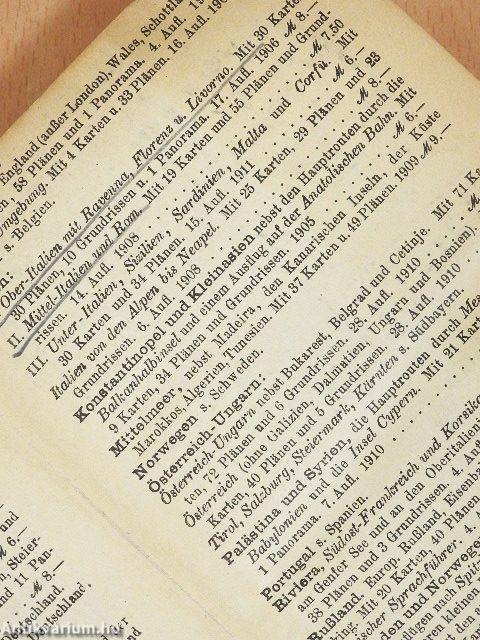 England (außer London), Wales, Schottland
58 Plänen und 1 Panorama. 4. Aufl. 190
Umgebung. Mit 4 Karten u. 33 Plänen. 16. Aufl. 190
s. Belgien.
Ober-Italien mit Ravenna, Florenz u. Livorno. Mit 30 Karten,
30 Plänen, 10 Grundrissen u. 1 Panorama. 17. Aufl. 1906 M 8.—
II. Mittel-Italien und Rom. Mit 19 Karten und 55 Plänen und Grund-
rissen. 14. Aufl. 1908 M 7,50
III. Unter-Italien, Sizilien, Sardinien, Malta und Corfù. Mit
30 Karten und 34 Plänen. 15. Aufl. 1911 M 6.—
Italien von den Alpen bis Neapel. Mit 25 Karten, 29 Plänen und 23
Grundrissen. 6. Aufl. 1908 M 8.—
Konstantinopel und Kleinasien nebst den Hauptrouten durch die
Balkanhalbinsel und einem Ausflug auf der Anatolischen Bahn. Mit
9 Karten, 34 Plänen und Grundrissen. 1905 M 6.—
Mittelmeer, nebst Madeira, den Kanarischen Inseln, der Küste
Marokkos, Algerien, Tunesien. Mit 37 Karten u. 49 Plänen. 1909 M 9.—
Norwegen s. Schweden.
Österreich-Ungarn:
Österreich-Ungarn nebst Bukarest, Belgrad und Cetinje. Mit 71 Kar
ten, 72 Plänen und 6 Grundrissen. 28. Aufl. 1910 M
Österreich (ohne Galizien, Dalmatien, Ungarn und Bosnien).
Karten, 40 Plänen und 5 Grundrissen. 28. Aufl. 1910
Tirol, Salzburg, Steiermark, Kärnten s. Südbayern.
Palästina und Syrien, die Hauptrouten durch Mes
Babylonien und die Insel Cypern. Mit 21 Kart
1 Panorama. 7. Aufl. 1910
Portugal s. Spanien.
Riviera, Südost-Frankreich und Korsika
am Genfer See und an den Oberitalien
38 Plänen und 3 Grundrissen. 4. Au
Rußland. Europ. Rußland, Eisenba
Mit 20 Karten, 40 Plänen
scher Sprachführer. 4.
und Norwegen
nach Spitz
kleinen
M 6.—
Steier-
11 Pan-
M 8.—
schland.
schland.
Antikvarium.hu